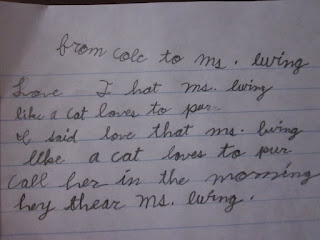 from Cole to ms. Ewing
Love I hat ms. Ewing
like a cat loves to pur
I said love that ms. Ewing
like a cat loves to pur
Call her in the morning
hey thear ms. Ewing.